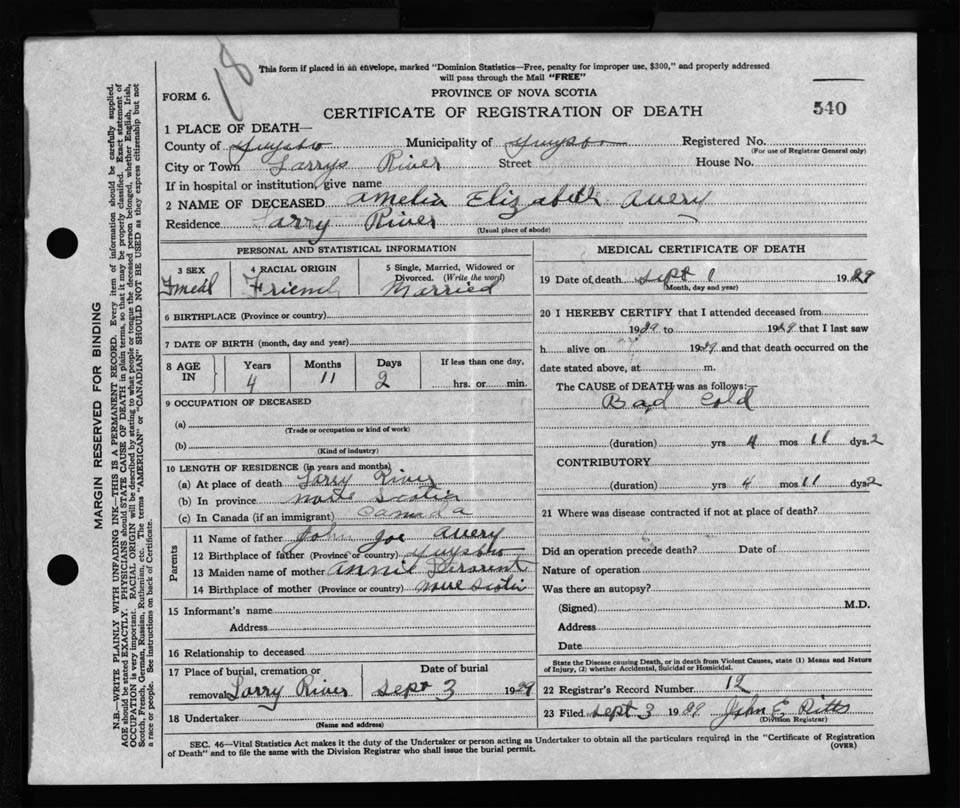 18
This form if placed in an envelope, marked "Dominion Statistics—Free, penalty for improper use, $300," and properly addressed
will pass through the Mail "FREE"
FORM 6.
PROVINCE OF NOVA SCOTIA
540
CERTIFICATE OF REGISTRATION OF DEATH
1 PLACE OF DEATH—
County of Guysbro Municipality of Guysbro Registered No.
(For use of Registrar General only)
City or Town Larrys River Street House No.
If in hospital or institution, give name
2 NAME OF DECEASED Amelia Elizabeth Avery
Residence Larry River
(Usual place of abode)
PERSONAL AND STATISTICAL INFORMATION
3 SEX 4 RACIAL ORIGIN 5 Single, Married, Widowed or
Divorced. (Write the word)
Fmeal Friench Married
6 BIRTHPLACE (Province or country)
7 DATE OF BIRTH (month, day and year)
8 AGE IN Years Months Days If less than one day,
4 11 2 hrs. or min.
9 OCCUPATION OF DECEASED
(a)
(Trade or occupation or kind of work)
(b)
(Kind of industry)
10 LENGTH OF RESIDENCE (in years and months)
(a) At place of death Larry River
(b) In province Scotia
(c) In Canada (if an immigrant) Canada
Parents
11 Name of father John Joe Avery
12 Birthplace of father (Province or country) Guysbro
13 Maiden name of mother Annie
14 Birthplace of mother (Province or country) Scotia
15 Informant's name
Address
16 Relationship to deceased
17 Place of burial, cremation or Date of burial
removal Larry River Sept 3 1929
18 Undertaker
(Name and address)
MEDICAL CERTIFICATE OF DEATH
19 Date of death Sept 1 1929
(Month, day and year)
20 I HEREBY CERTIFY that I attended deceased from
1929 to 1929 that I last saw
h alive on 1929 and that death occurred on the
date stated above, at m.
The CAUSE of DEATH was as follows:—
Bad Cold
(duration) yrs 4 mos 11 dys. 2
CONTRIBUTORY
(duration) yrs 4 mos 11 dys. 2
21 Where was disease contracted if not at place of death?
Did an operation precede death? Date of
Nature of operation
Was there an autopsy?
(Signed) M.D.
Address
Date
State the Disease causing Death, or in death from Violent Causes, state (1) Means and Nature
of Injury, (2) whether Accidental, Suicidal or Homicidal.
22 Registrar's Record Number 12
23 Filed Sept 3 1929 John E Pitts
(Division Registrar)
SEC. 46—Vital Statistics Act makes it the duty of the Undertaker or person acting as Undertaker to obtain all the particulars required in the "Certificate of Registration
of Death" and to file the same with the Division Registrar who shall issue the burial permit.
(OVER)
MARGIN RESERVED FOR BINDING
N.B.—WRITE PLAINLY WITH UNFADING INK—THIS IS A PERMANENT RECORD. Every item of information should be carefully supplied.
AGE should be stated EXACTLY. PHYSICIANS should STATE CAUSE OF DEATH in plain terms, so that it may be properly classified. Exact statement of
OCCUPATION is very important. RACIAL ORIGIN will be described by stating to what people or tongue the deceased person belonged, whether English, Irish,
Scotch, French, German, Russian, Ruthenian, etc. The terms "AMERICAN" or "CANADIAN" SHOULD NOT BE USED as they express citizenship but not
a race or people. See instructions on back of Certificate.